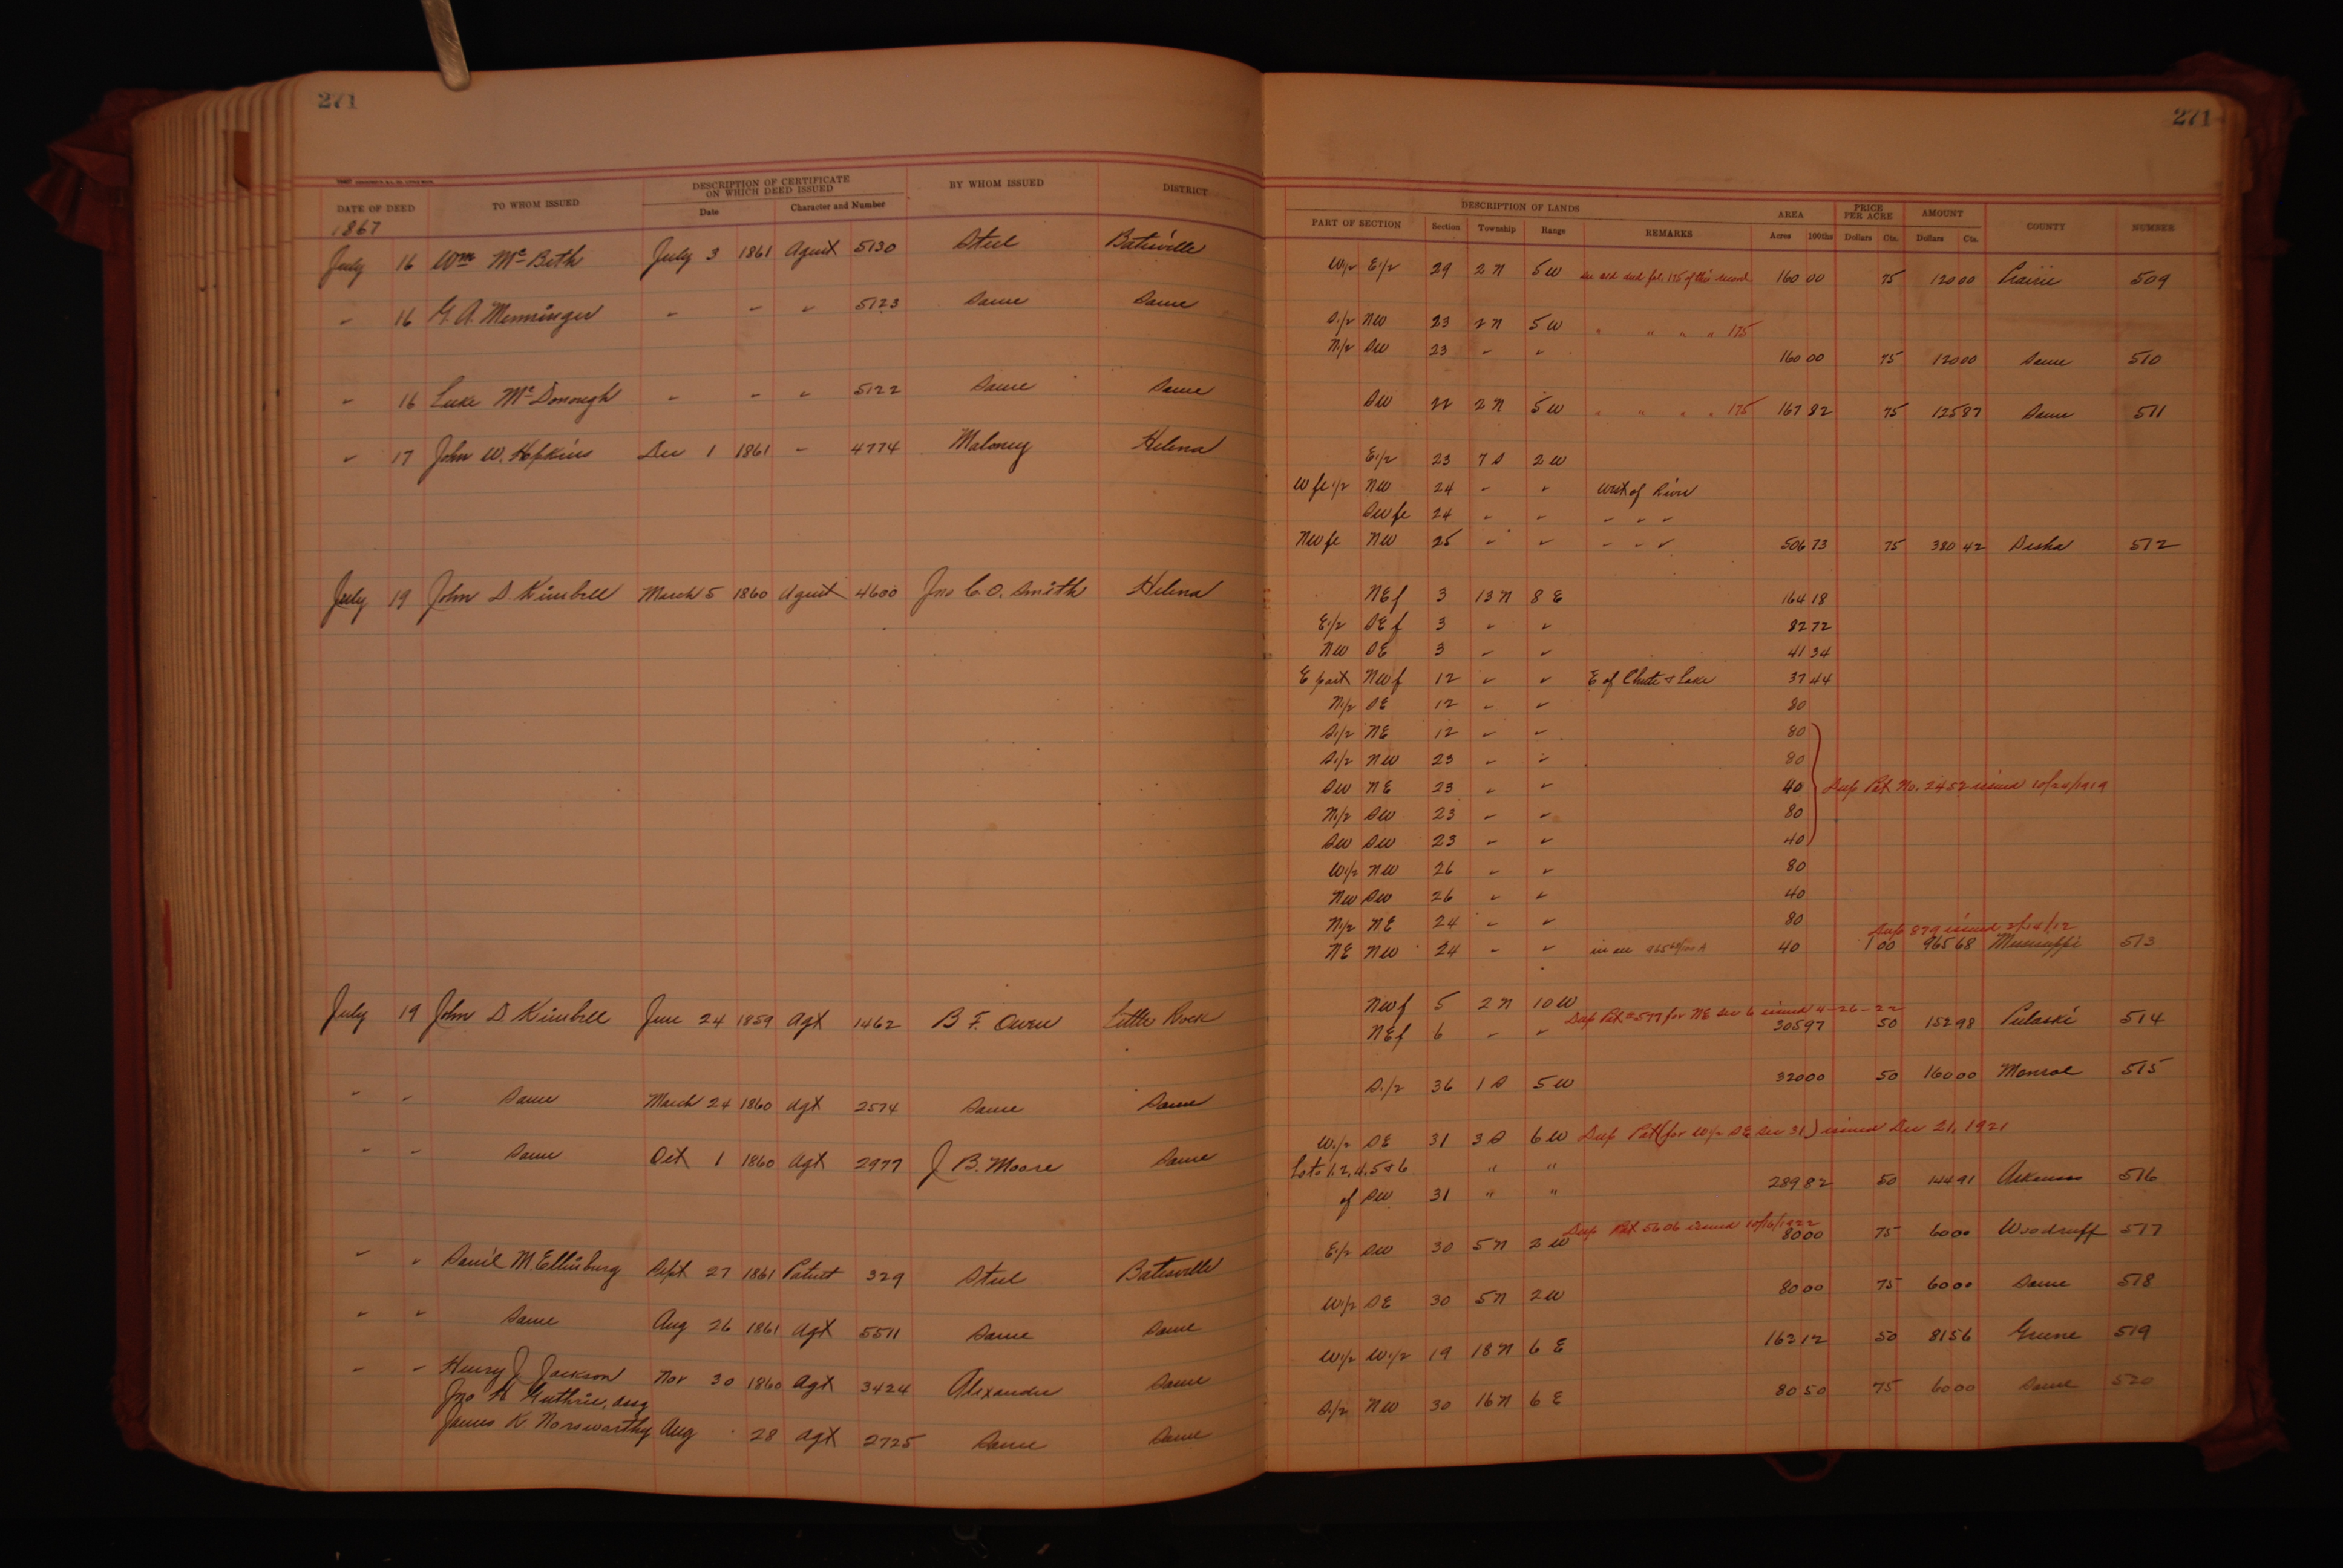 271
DATE OF DEED TO WHOM ISSUED DESCRIPTION OF CERTIFICATE ON WHICH DEED ISSUED Date Character and Number BY WHOM ISSUED DISTRICT
1867
July 16 Wm McBeth July 3 1861 Agent 5130 Steel Batesville
" 16 G. A. Menninger " " " 5123 Same Same
" 16 Luke McDonough " " " 5122 Same Same
" 17 John W. Hopkins Dec 1 1861 " 4774 Maloney Helena
July 19 John D. Kimbell March 5 1860 Agent 4600 Jno C. O. Smith Helena
July 19 John D. Kimbell June 24 1859 Agt 1462 B F. Owen Little Rock
" " Same March 24 1860 Agt 2574 Same Same
" " Same Oct 1 1860 Agt 2977 J B. Moore Same
" " Saml M Ellinburg Sept 27 1861 Patent 329 Steel Batesville
" " Same Aug 26 1861 Agt 5511 Same Same
" " Henry J Jackson Nov 30 1860 Agt 3424 Alexander Same
Jno H Guthrie, assg
James K. Norsworthy Aug 28 Agt 2725 Same Same
271
DESCRIPTION OF LANDS AREA PRICE PER ACRE AMOUNT COUNTY NUMBER
PART OF SECTION Section Township Range REMARKS Acres 100ths Dollars Cts. Dollars Cts.
W1/2 E1/2 29 2 N 5 W See old deed fol. 175 of this record 160 00 75 120 00 Prairie 509
S1/2 NW 23 2 N 5 W " " " " 175
N1/2 SW 23 " " 160 00 75 120 00 Same 510
SW 22 2 N 5 W " " " " 175 167 82 75 125 87 Same 511
E1/2 23 7 S 2 W
W fr 1/2 NW 24 " " West of River
SW fr 24 " " " " "
NW fr NW 25 " " " " " 506 73 75 380 42 Desha 512
NE f 3 13 N 8 E 164 18
E1/2 SE f 3 " " 82 72
NW SE 3 " " 41 34
E part NW f 12 " " E of Chute & Lake 37 44
N1/2 SE 12 " " 80
S1/2 NE 12 " " 80
S1/2 NW 23 " " 80
SW NE 23 " " 40 Dup Pat No. 2452 issued 10/20/1919
N1/2 SW 23 " " 80
SW SW 23 " " 40
W1/2 NW 26 " " 80
NW SW 26 " " 40
N1/2 NE 24 " " 80 Dup 879 issued 2/19/12
NE NW 24 " " in all 965 68/100 A 40 1 00 965 68 Mississippi 513
NW f 5 2 N 10 W Dup Pat #577 for NE Sec 6 issued 4-26-22
NE f 6 " " 305 97 50 152 98 Pulaski 514
S1/2 36 1 S 5 W 320 00 50 160 00 Monroe 515
W1/2 SE 31 3 S 6 W Dup Pat (for W1/2 SE Sec 31) issued Dec 21, 1921
Lots 1, 2, 4, 5 & 6 " "
of SW 31 " " 289 82 50 144 91 Arkansas 516
Dup Pat 5606 issued 10/16/1922
E1/2 SW 30 5 N 2 W 80 00 75 60 00 Woodruff 517
W1/2 SE 30 5 N 2 W 80 00 75 60 00 Same 518
W1/2 W1/2 19 18 N 6 E 163 12 50 81 56 Greene 519
S1/2 NW 30 16 N 6 E 80 50 75 60 00 Same 520